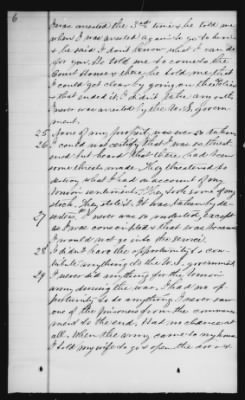 6
I was arrested the 5th time & he told me
when I was arrested again to go to him &
he said I dont know what I can do
for you. He told me to come to the
Court House & there he told me that
I could get clear by going on the
& that ended it. I didn't take any oath.
I never was arrested by the U.S. govern-
ment.
25 None of my property was ever so taken
26 I could not certify that I was
and but heard that there had been
some threats made. They threatened to
destroy what I had on account of my
Union sentiments. They took some of my
stock. They stole it. It was taken by de-
27 I never was so molested, except
as I was conscripted & that was because
I would not go into the service.
28 I didn't have the opportunity to con-
tribute anything to the U.S. government
29 I never did anything for the Union
army during the war. I had no op-
portunity to do anything. I never saw
one of the prisoners from the commence-
ment to the end. Had no chance at
all. When the army came to my house
I told my wife to get open the door &